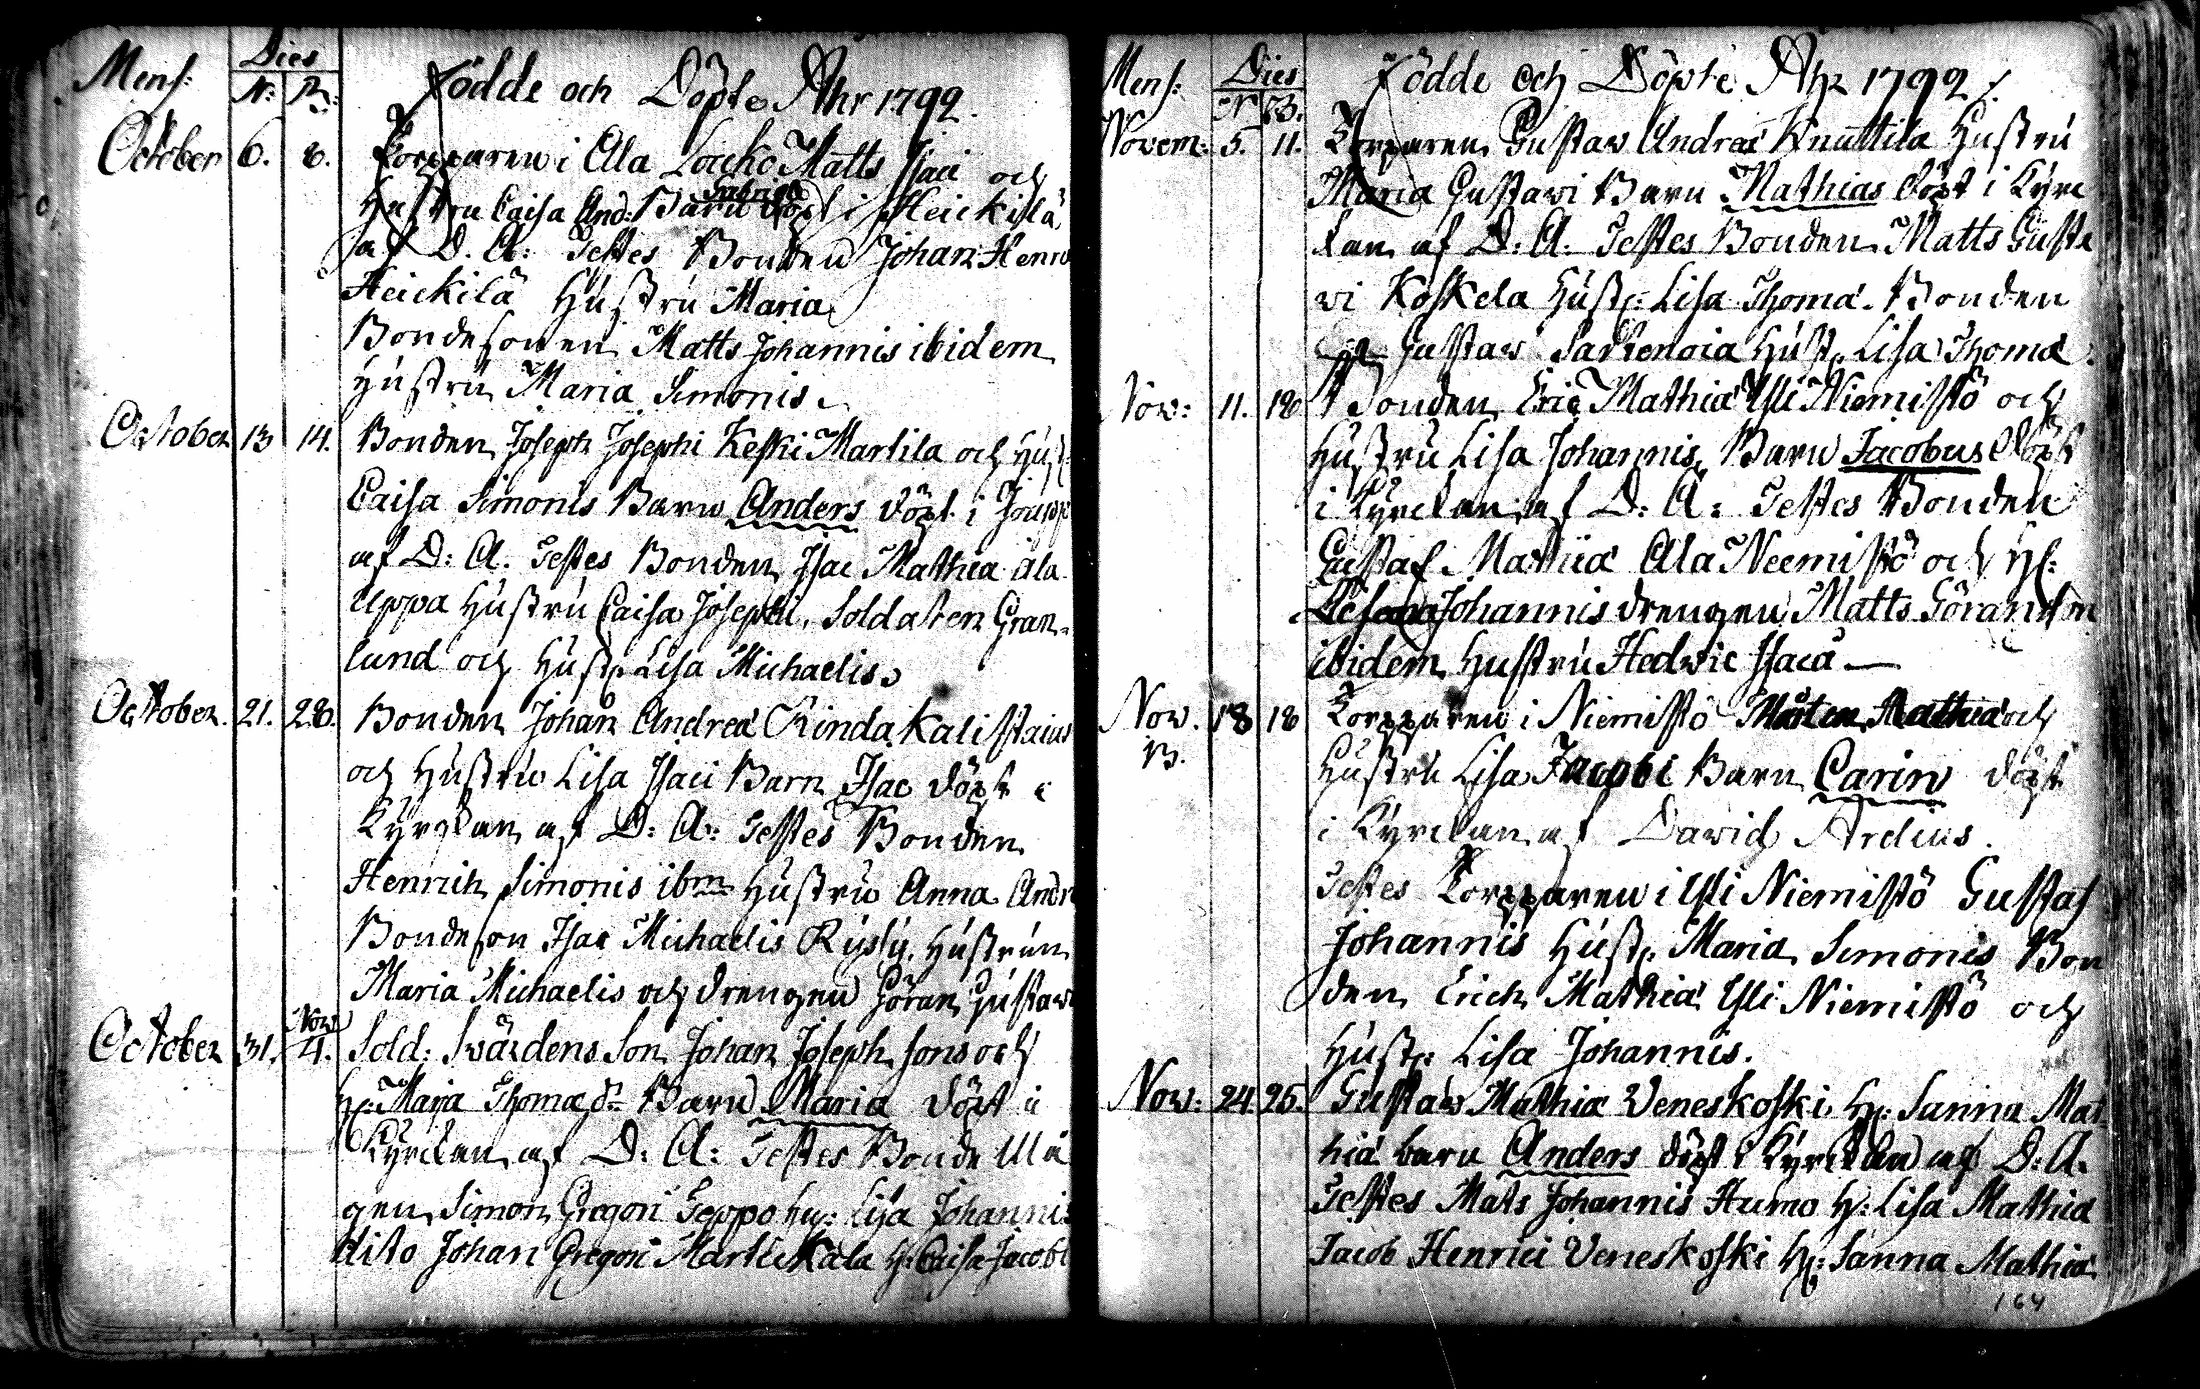 Mens: Dies
N: B: Födde och Döpte Åhr 1792.
October 6. 8. Torpparen i Ala Louko Matts Isaci och
Gabriel
Hustru Caisa And: Barn döpt i Heickilä
af D. A: Testes Bonden Johan Henri
Heickilä Hustru Maria
Bondesonen Matts Johannis ibidem
Hustru Maria Simonis.
October 13 14. Bonden Joseph Josephi Keski Martila och Hust:
Caisa Simonis Barn Anders döpt i Joupp
af D: A. Testes Bonden Isac Mathiæ ala
Uppa Hustru Caisa Josephi. Soldaten Gran-
lund och Hust: Lisa Michaelis.
October. 21. 28. Bonden Johan Andreæ Rinda Kalistaius
och Hustru Lisa Isaci Barn Isac döpt i
Kÿrckan af D: A: Testes Bonden
Henrich Simonis ibm Hustru Anna Andr
Bondeson Isac Michaelis Rÿsÿ, Hustrun
Maria Michaelis och drengen Göran Gustavi
Nov
October 31. 4. Sold: Svärdens Son Johan Joseph sons och
H: Maja Thomæ dr Barn Maria döpt i
Kÿrckan af D: A: Testes Bonde Må
gen Simon Gregori Seppo hu: Lisa Johannis
dito Johan Gregori Marttikala H: Caisa Jacobi
Mens: Dies
N B. Födde och Döpte Åhr 1792.
Novem: 5. 11. Torparen Gustav Andreæ Knuttila Hustru
Maria Gustavi Barn Mathias döpt i Kÿrc
kan af D: A: Testes Bonden Matts Gusta
vi Koskela Hust: Lisa Thomæ. Bonden
Gustav Sartenoia Hust: Lisa Thomæ.
Nov: 11. 18 Bonden Eric Mathiæ Yli Niemistö och
Hustru Lisa Johannis Barn Jacobus döpt
i Kÿrckan af D: A: Testes Bonden
Gustaf Mathiæ Ala Neemistö och H:
Johannis drengen Matts Göransson
ibidem Hustru Hedvic Isaca —
Nov. 18 18 Torpparen i Niemistö Mårten Mathiæ och
B. Hustru Lisa Jacobi Barn Carin döpt
i Kÿrckan af David Arelius.
Testes Torpparen i Yli Niemistö Gustaf
Johannis Hust: Maria Simonis Bon
den Erich Mathiæ Yli Niemistö och
Hust: Lisa Johannis.
Nov: 24 25. Gustav Mathiæ Veneskoski, H: Sanna Mat
hiæ barn Anders döpt i Kÿrckan af D: A.
Testes Mats Johannis Humo H: Lisa Mathiæ
Jacob Henrici Veneskoski H: Sanna Mathiæ
164